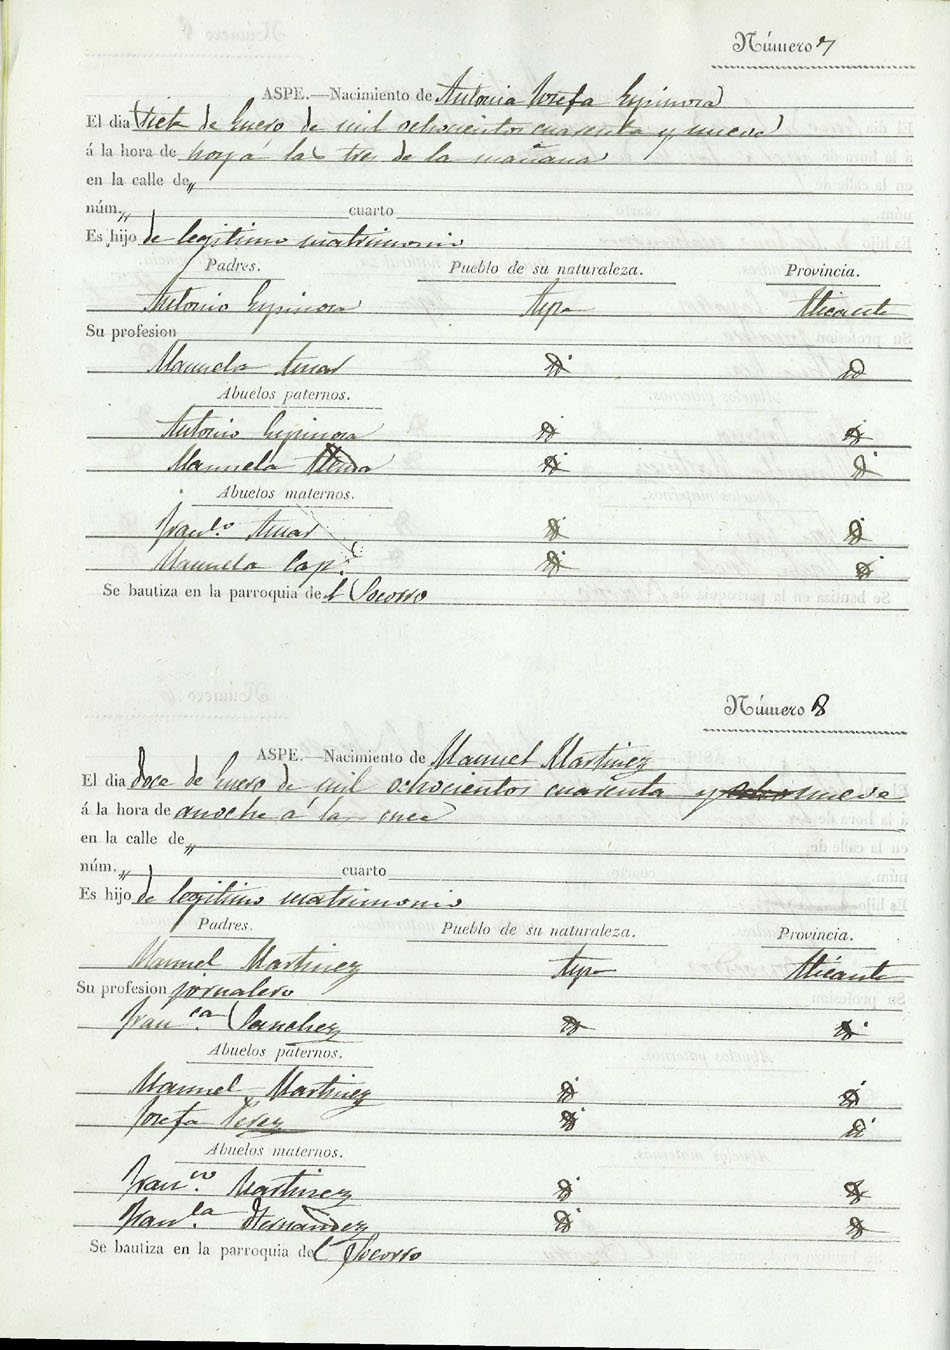 Número 7
ASPE.—Nacimiento de Antonia Josefa Espinosa
El dia siete de Enero de mil ochocientos cuarenta y nueve
á la hora de hoy á las tres de la mañana
en la calle de „
núm. „ cuarto
Es hijo de legitimo matrimonio
Padres. Pueblo de su naturaleza. Provincia.
Antonio Espinosa Aspe Alicante
Su profesion
Manuela id id
Abuelos paternos.
Antonio Espinosa id id
Manuela id id
Abuelos maternos.
Franco. id id
Manuela id id
Se bautiza en la parroquia del Socorro
Número 8
ASPE.—Nacimiento de Manuel Martinez
El dia doce de Enero de mil ochocientos cuarenta y nueve
á la hora de anoche á las once
en la calle de „
núm. „ cuarto
Es hijo de legitimo matrimonio
Padres. Pueblo de su naturaleza. Provincia.
Manuel Martinez Aspe Alicante
Su profesion jornalero
Franca. Sanchez id id
Abuelos paternos.
Manuel Martinez id id
Josefa Perez id id
Abuelos maternos.
Franco. Martinez id id
Hernandez id id
Se bautiza en la parroquia del Socorro